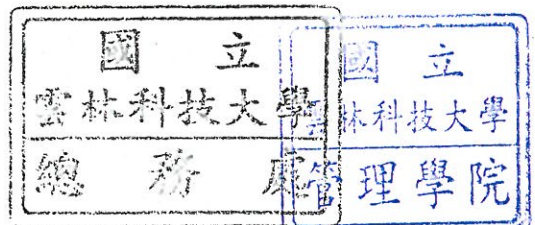 國立
雲林科技大學
總務處
國立
雲林科技大學
管理學院